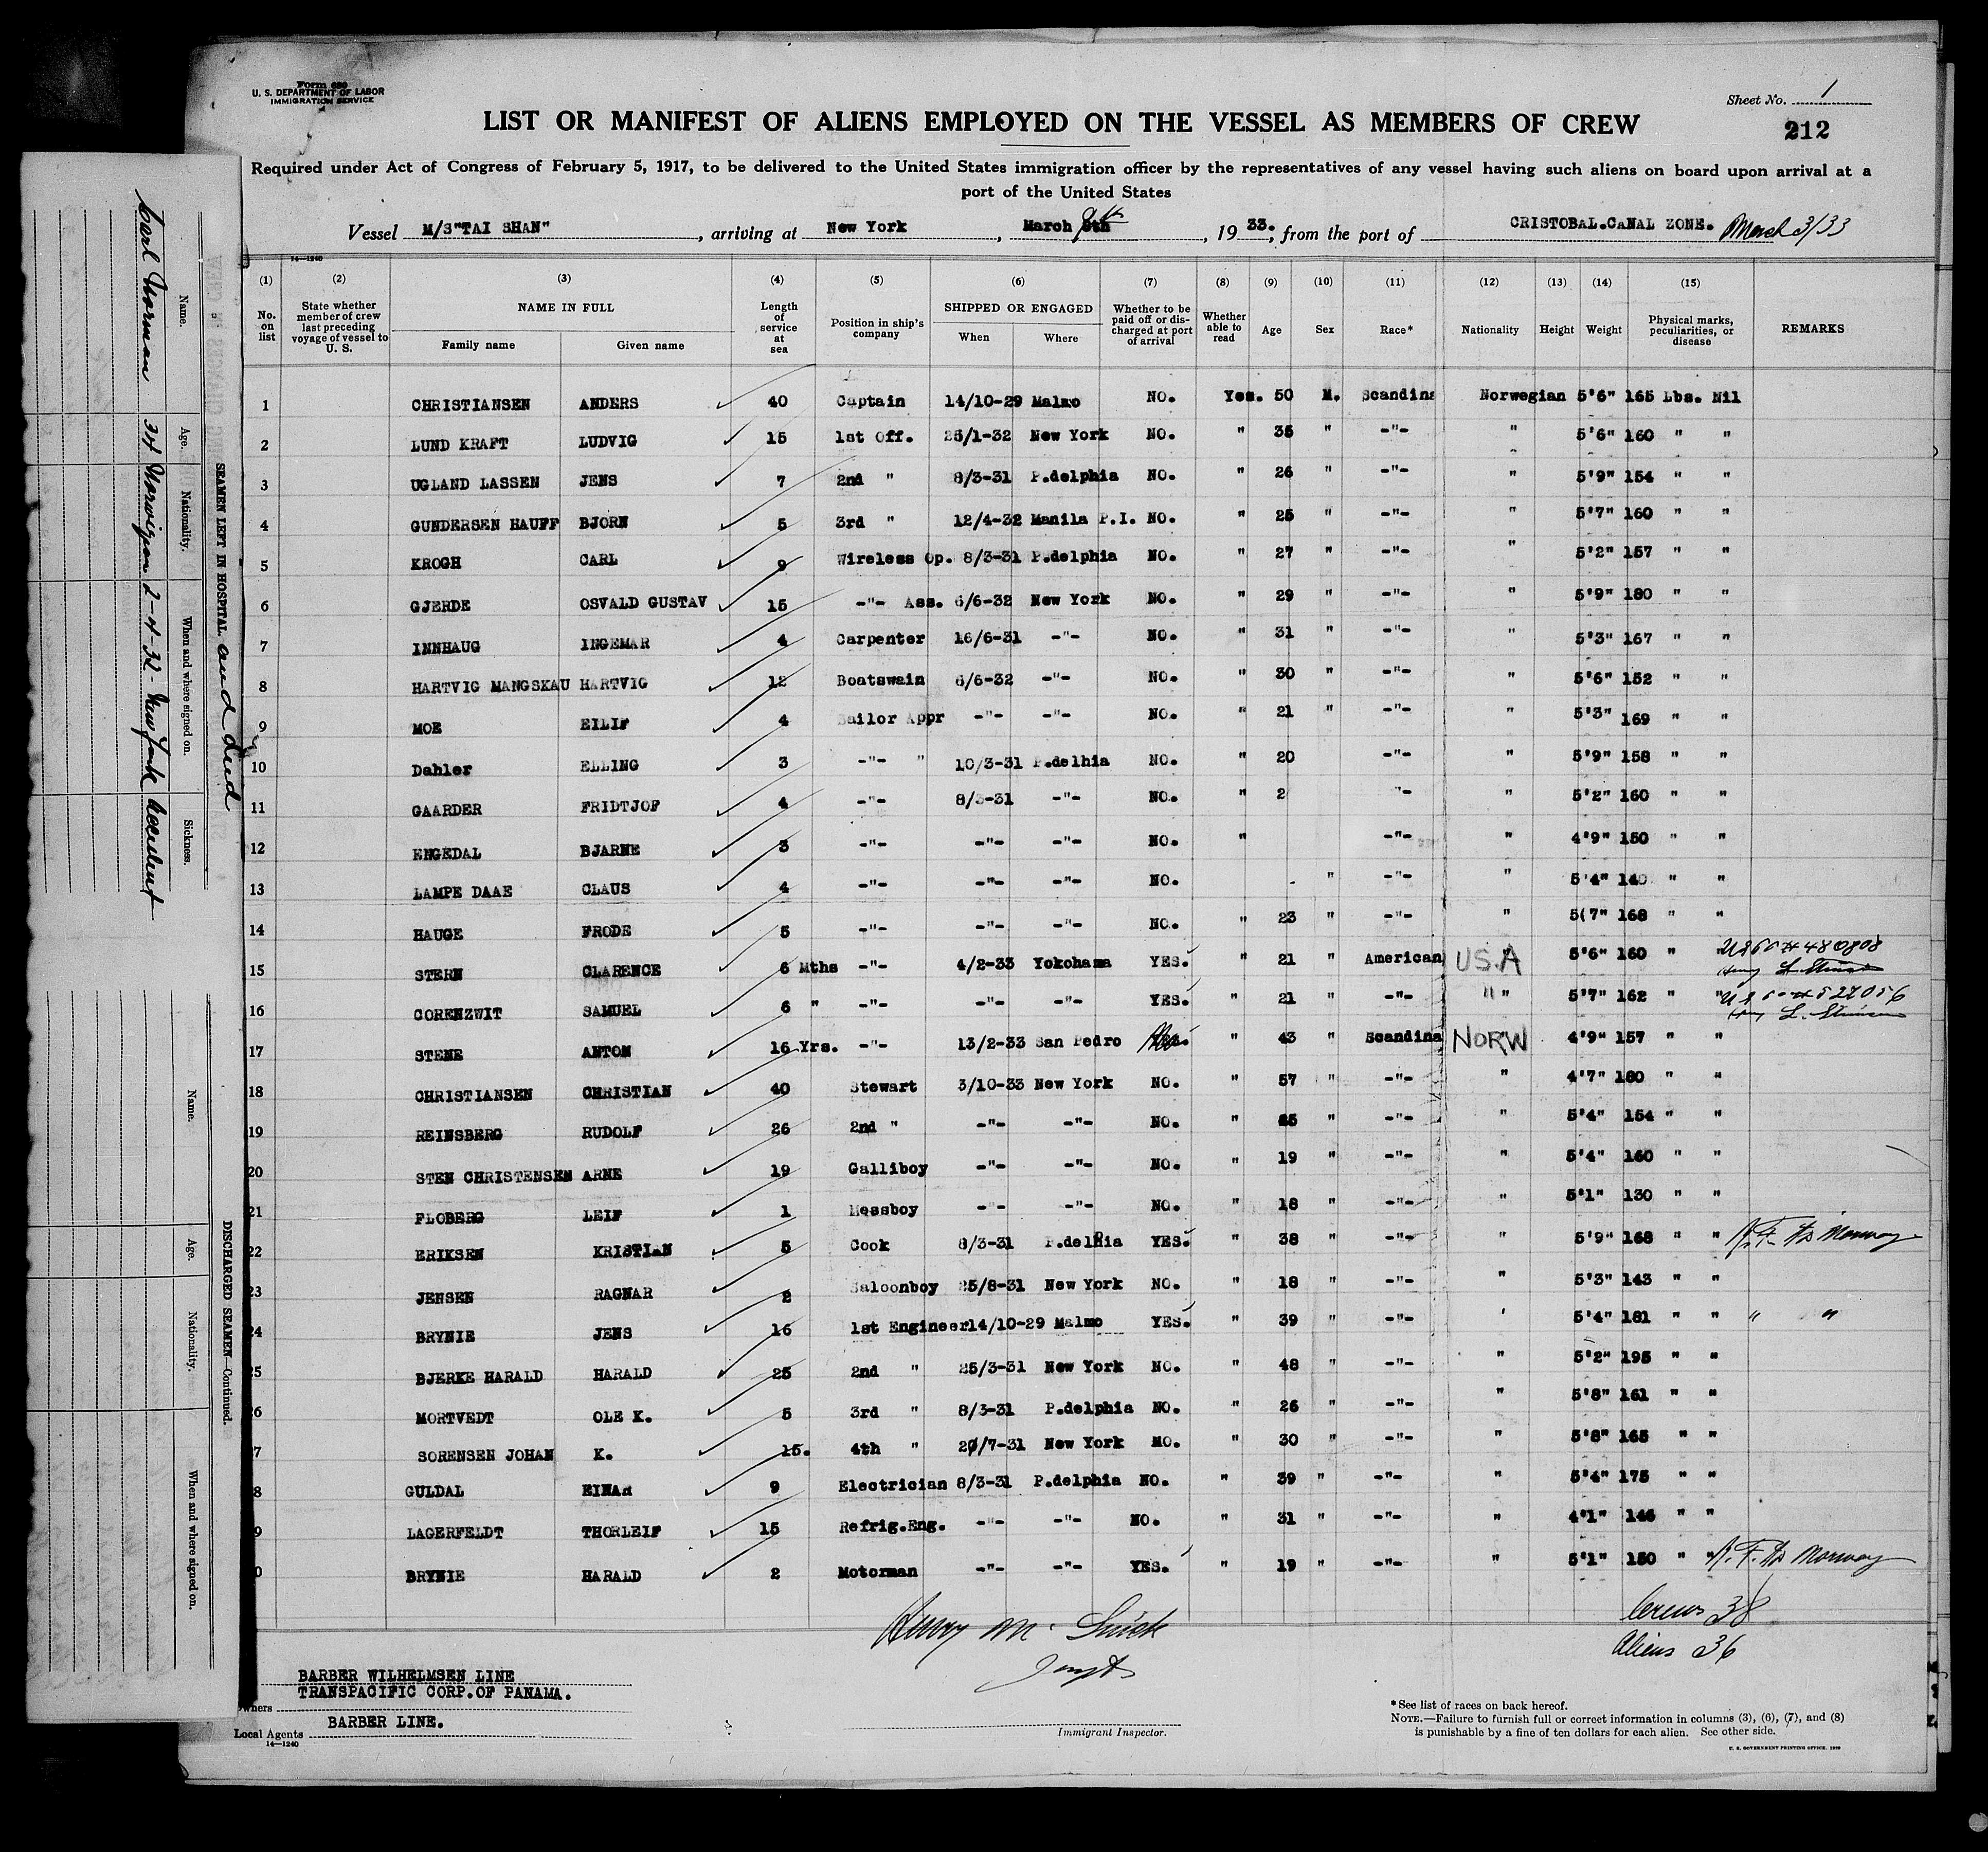 Form 680
U. S. DEPARTMENT OF LABOR
IMMIGRATION SERVICE
Sheet No. 1
LIST OR MANIFEST OF ALIENS EMPLOYED ON THE VESSEL AS MEMBERS OF CREW
212
Required under Act of Congress of February 5, 1917, to be delivered to the United States immigration officer by the representatives of any vessel having such aliens on board upon arrival at a
port of the United States
Vessel M/S"TAI SHAN", arriving at New York, March 9th, 1933., from the port of CRISTOBAL.CANAL ZONE. March 3/33
14—1240
(1) (2) (3) (4) (5) (6) (7) (8) (9) (10) (11) (12) (13) (14) (15)
No. on list
State whether member of crew last preceding voyage of vessel to U. S.
NAME IN FULL
Family name Given name
Length of service at sea
Position in ship's company
SHIPPED OR ENGAGED
When Where
Whether to be paid off or discharged at port of arrival
Whether able to read
Age
Sex
Race*
Nationality
Height
Weight
Physical marks, peculiarities, or disease
REMARKS
1 CHRISTIANSEN ANDERS 40 Captain 14/10-29 Malmo NO. Yes. 50 M. Scandina Norwegian 5'6" 165 Lbs. Nil
2 LUND KRAFT LUDVIG 15 1st Off. 25/1-32 New York NO. " 35 " -"- " 5'6" 160 " "
3 UGLAND LASSEN JENS 7 2nd " 8/3-31 P.delphia NO. " 26 " -"- " 5'9" 154 " "
4 GUNDERSEN HAUFF BJORN 5 3rd " 12/4-32 Manila P.I. NO. " 25 " -"- " 5'7" 160 " "
5 KROGH CARL 9 Wireless Op. 8/3-31 P.delphia NO. " 27 " -"- " 5'2" 157 " "
6 GJERDE OSVALD GUSTAV 15 -"- Ass. 6/6-32 New York NO. " 29 " -"- " 5'9" 180 " "
7 INNHAUG INGEMAR 4 Carpenter 16/6-31 -"- NO. " 31 " -"- " 5'3" 167 " "
8 HARTVIG MANGSKAU HARTVIG 12 Boatswain 6/6-32 -"- NO. " 30 " -"- " 5'6" 152 " "
9 MOE EILIF 4 Sailor Appr -"- -"- NO. " 21 " -"- " 5'3" 169 " "
10 Dahler ELLING 3 -"- " 10/3-31 P.delhia NO. " 20 -"- " 5'9" 158 " "
11 GAARDER FRIDTJOF 4 -"- 8/3-31 -"- NO. " 2 "- " 5'2" 160 " "
12 ENGEDAL BJARNE 3 -"- -"- -"- NO. " -"- " 4'9" 150 " "
13 LAMPE DAAE CLAUS 4 -"- -"- -"- NO. " -"- " 5'4" 140 " "
14 HAUGE FRODE 5 -"- -"- -"- NO. " 23 " -"- " 5(7" 168 " "
15 STERN CLARENCE 6 Mths -"- 4/2-33 Yokohama YES. " 21 " American USA 5'6" 160 " " 480808
16 CORENZWIT SAMUEL 6 " -"- -"- -"- YES. " 21 " -"- " " 5'7" 162 " " 527056
17 STENE ANTON 16 Yrs. -"- 13/2-33 San Pedro " 43 " Scandina NORW 4'9" 157 " "
18 CHRISTIANSEN CHRISTIAN 40 Stewart 3/10-33 New York NO. " 57 " -"- " 4'7" 180 " "
19 REINSBERG RUDOLF 26 2nd " -"- -"- NO. " " -"- " 5'4" 154 " "
20 STEN CHRISTENSEN ARNE 19 Galliboy -"- -"- NO. " 19 " -"- " 5'4" 160 " "
21 FLOBERG LEIF 1 Messboy -"- -"- NO. " 18 " -"- " 5'1" 130 " "
22 ERIKSEN KRISTIAN 5 Cook 8/3-31 P.delhia YES. " 38 " -"- " 5'9" 168 " " R.F. to Norway
23 JENSEN RAGNAR 2 Saloonboy 25/8-31 New York NO. " 18 " -"- " 5'3" 143 " "
24 BRYNIE JENS 16 1st Engineer14/10-29 Malmo YES. " 39 " -"- ' 5'4" 181 " " " "
25 BJERKE HARALD HARALD 25 2nd " 25/3-31 New York NO. " 48 " -"- " 5'2" 195 " "
26 MORTVEDT OLE K. 5 3rd " 8/3-31 P.delphia NO. " 26 " -"- " 5'8" 161 " "
7 SORENSEN JOHAN K. 15. 4th " 20/7-31 New York NO. " 30 " -"- " 5'8" 165 " "
8 GULDAL EINAR 9 Electrician 8/3-31 P.delphia NO. " 39 " -"- " 5'4" 175 " "
9 LAGERFELDT THORLEIF 15 Refrig.Eng. -"- -"- NO. " 31 " -"- " 4'1" 146 " "
0 BRYNIE HARALD 2 Motorman -"- -"- YES. " 19 " -"- " 5'1" 150 " " R.F. to Norway
Crews 38
Aliens 36
BARBER WILHELMSEN LINE
TRANSPACIFIC CORP.OF PANAMA.
Owners
Local Agents BARBER LINE.
14—1240
Immigrant Inspector.
*See list of races on back hereof.
NOTE.—Failure to furnish full or correct information in columns (3), (6), (7), and (8)
is punishable by a fine of ten dollars for each alien. See other side.
U. S. GOVERNMENT PRINTING OFFICE. 1930
SEAMEN LEFT IN HOSPITAL and died
Name. Age. Nationality. When and where signed on. Sickness.
Carl Norman 34 Norwigian 2-4-32- New York Accident
DISCHARGED SEAMEN—Continued.
Name. Age. Nationality. When and where signed on.